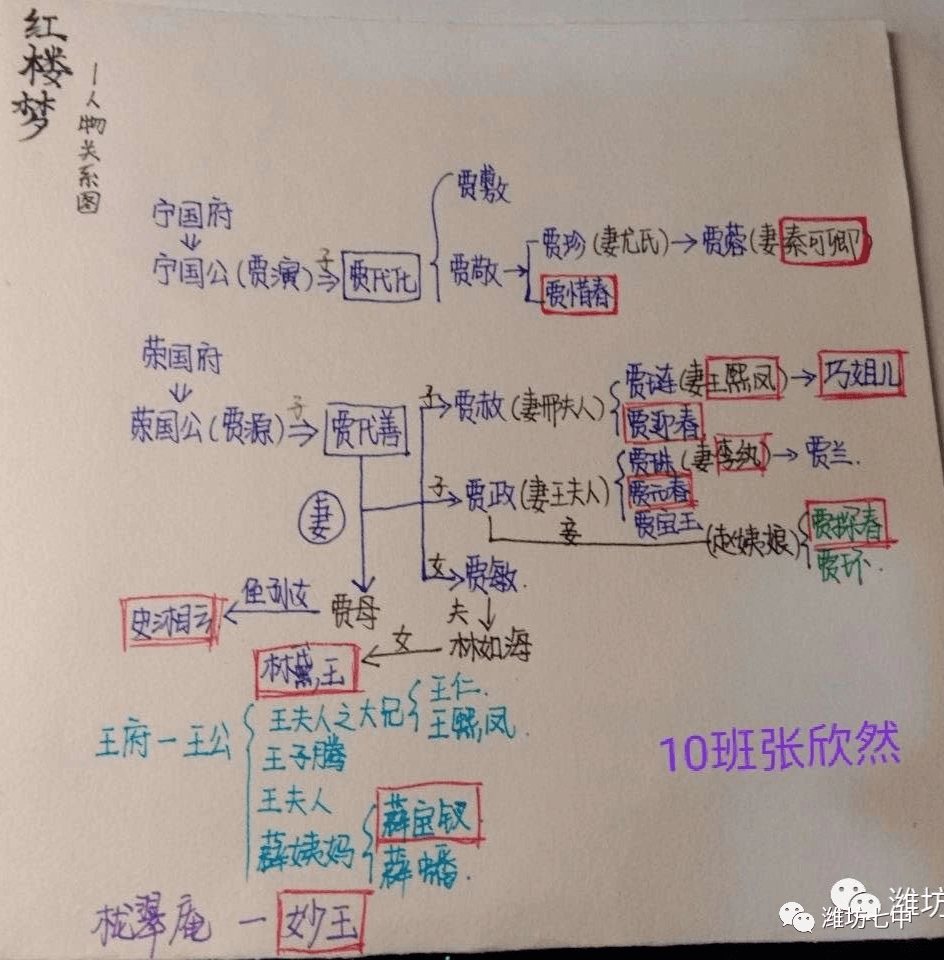 红楼梦
—人物关系图
贾敷
宁国府
贾珍(妻尤氏)→贾蓉(妻秦可卿)
宁国公(贾演) 子 贾代化
贾敬→
贾惜春
荣国府
贾琏(妻王熙凤)→巧姐儿
子 贾赦(妻邢夫人)
荣国公(贾源) 子 贾代善
贾迎春
贾珠(妻李纨)→贾兰.
子 贾政(妻王夫人)
贾元春
妻
贾宝玉
妾 (赵姨娘)
贾探春
贾环.
女 贾敏
史湘云 ← 侄孙女 贾母
夫
女 林如海
林黛玉
王仁.
王府—王公
王夫人之大兄
王熙凤
王子腾
王夫人
薛姨妈
薛宝钗
薛蟠.
10班张欣然
栊翠庵 — 妙玉
潍坊
潍坊七中